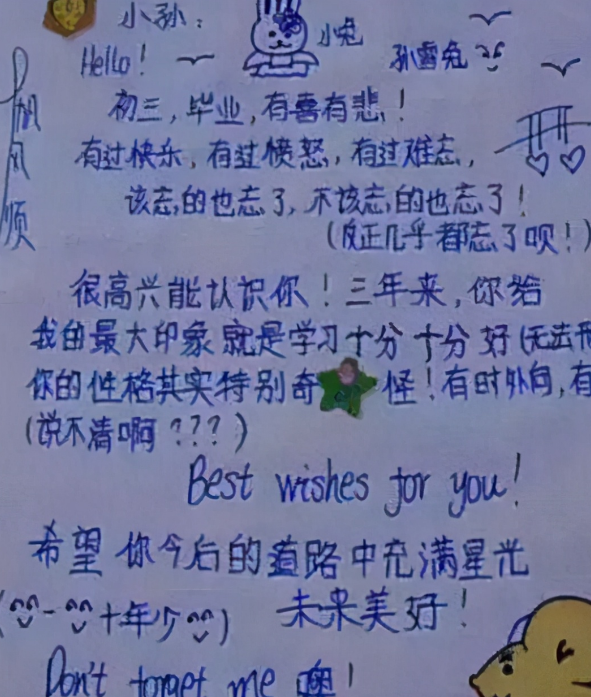 小孙：
小兔
Hello！
孙雪兔
帆风顺
初三，毕业，有喜有悲！
有过快乐，有过愤怒，有过难忘，
该忘的也忘了，不该忘的也忘了！
（反正几乎都忘了呗！）
很高兴能认识你！三年来，你给
我的最大印象就是学习十分十分好（无法
你的性格其实特别奇怪！有时外向，有
（说不清啊？？？）
Best wishes for you!
希望你今后的道路中充满星光
十年少
未来美好！
Don't forget me 噢！